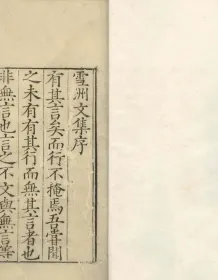 雪洲文集序
有其言矣而行不掩焉吾嘗聞
之未有有其行而無其言者也
非無言也言之不文與無言等